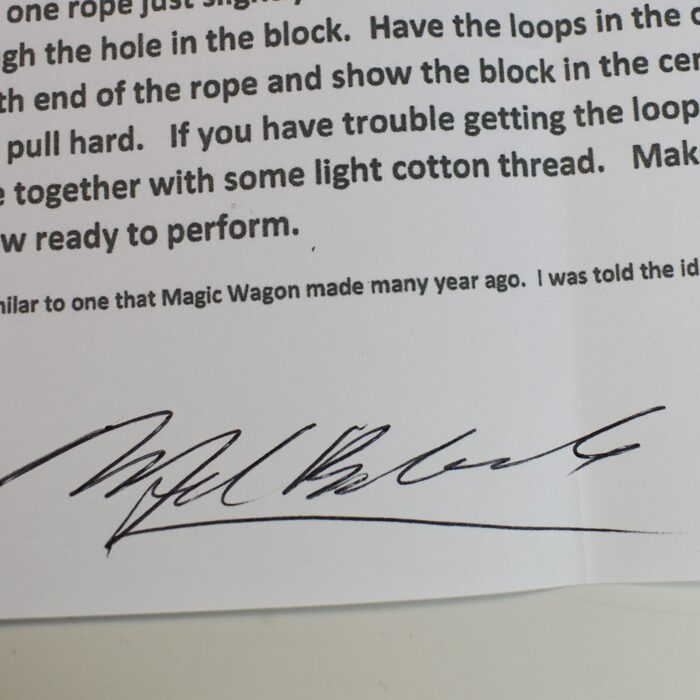 one rope just
gh the hole in the block. Have the loops in the
th end of the rope and show the block in the cen
pull hard. If you have trouble getting the loop
e together with some light cotton thread. Mak
w ready to perform.
milar to one that Magic Wagon made many year ago. I was told the id